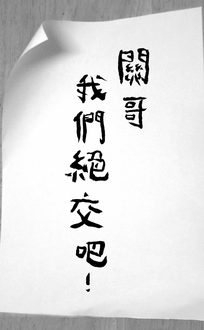 關哥
我們絕交吧!